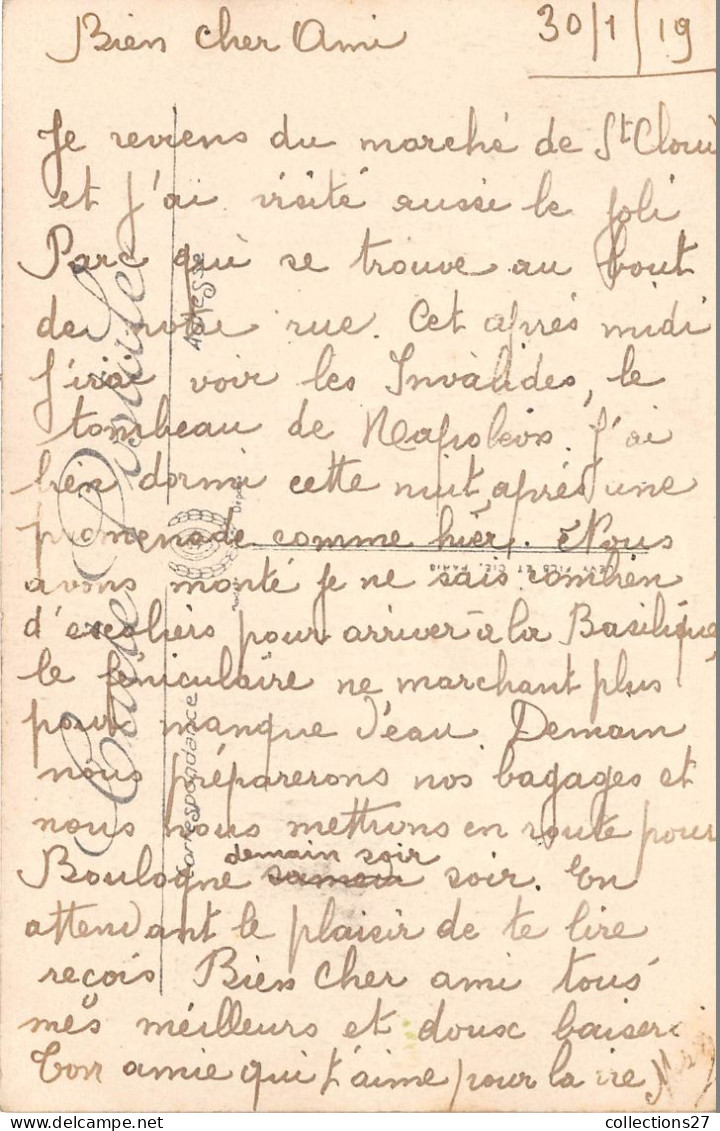 Bien cher Ami 30/1/19
Je reviens du marché de St Clou
et j'ai visité aussi le joli
Parc qui se trouve au bout
de notre rue. Cet après midi
j'irai voir les Invalides, le
tombeau de Napoléon. J'ai
bien dormi cette nuit, après une
promenade comme hier. Nous
avons monté je ne sais combien
d'escaliers pour arriver à la Basilique
le feniculaire ne marchant plus
pour manque d'eau. Demain
nous préparerons nos bagages et
nous nous mettrons en route pour
demain soir
Boulogne soir. En
attendant le plaisir de te lire
reçois Bien Cher ami tous
mes meilleurs et doux baisers
Ton amie qui t'aime pour la vie
Carte Postale
Correspondance
Adresse
LEVY FILS ET CIE, PARIS
collections27